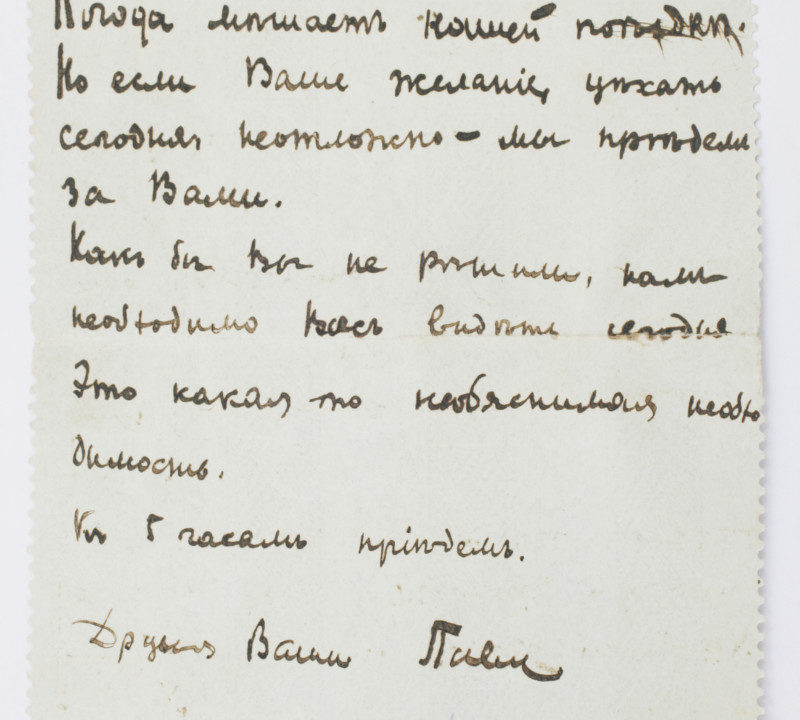 Погода мѣшаетъ нашей поѣздкѣ.
Но если Ваше желаніе уѣхать
сегодня неотложно – мы прѣдемъ
за Вами.
Какъ бы Вы не рѣшили, намъ
необходимо Васъ видѣть сегодня
Это какая то необяснимая необхо
димость.
Къ 5 часамъ пріѣдемъ.
Друзья Ваши